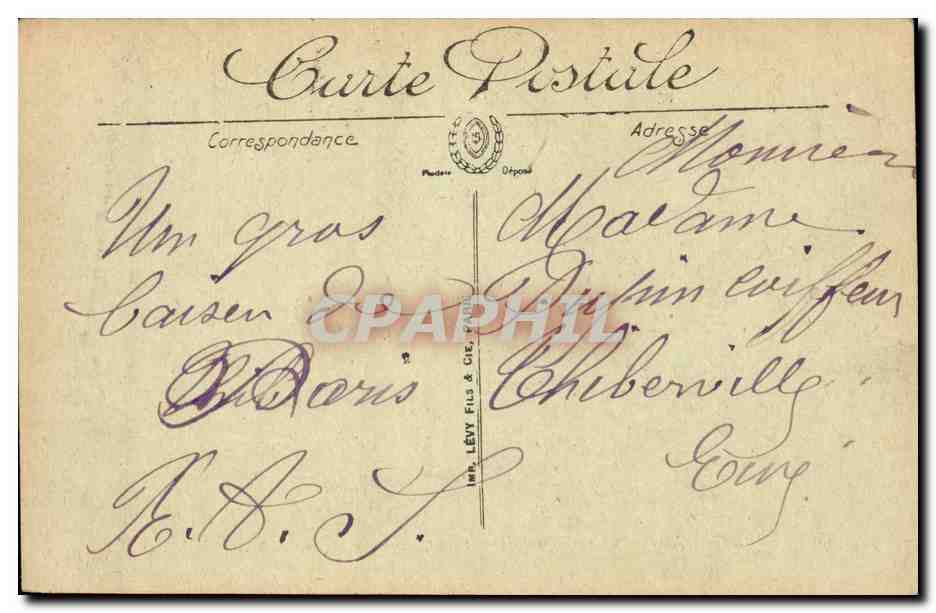 Carte Postale
Correspondance
Adresse
Modèle Déposé
Un gros
baiser de
Paris
R. A. S.
IMP. LÉVY FILS & CIE, PARIS
Monsieur
Madame
coiffeur
Thiberville
Eure
CPAPHIL